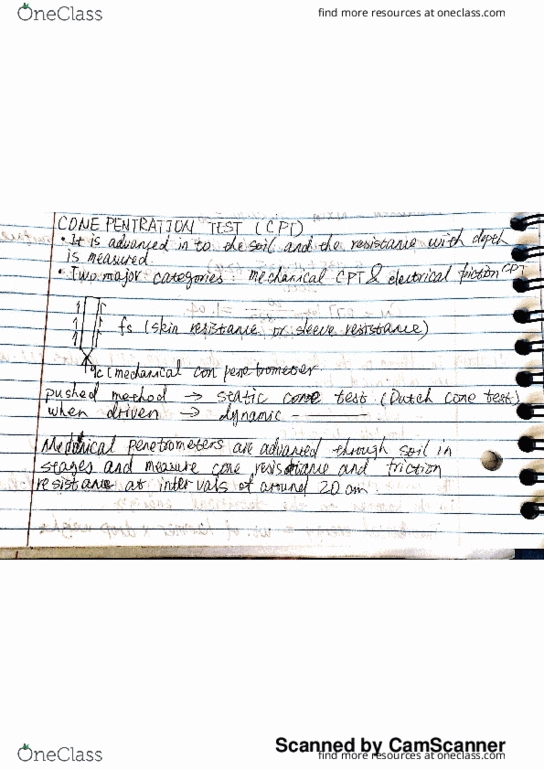 OneClass
find more resources at oneclass.com
CONE PENTRATION TEST (CPT)
• It is advanced in to the soil and the resistance with depth
is measured
• Two major categories : mechanical CPT & electrical friction CPT
fs (skin resistance or sleeve resistance)
qc (mechanical con penetrometer.
pushed method → static cone test (Dutch Cone test)
when driven → dynamic
Mechanical penetrometers are advanced through soil in
stages and measure cone resistance and friction
resistance at intervals of around 20 cm.
Scanned by CamScanner
OneClass
find more resources at oneclass.com